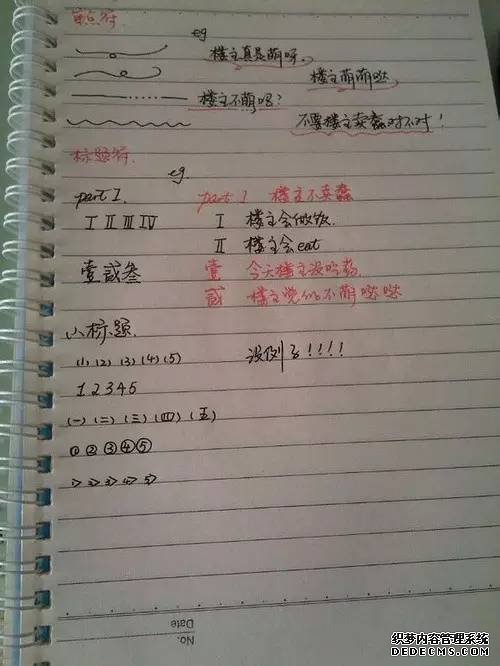 重点符
eg
楼主真是萌呀。
楼主萌萌哒
楼主不萌吗?
不要楼主卖蠢对不对!
标题符.
eg.
part I. part I 楼主不卖蠢
Ⅰ Ⅱ Ⅲ Ⅳ Ⅰ 楼主会做饭
Ⅱ 楼主会eat
壹 贰 叁 壹 今天楼主没吃药.
贰 楼主觉的不萌哒哒
小标题.
(1) (2) (3) (4) (5) 没例了!!!!
1 2 3 4 5
(一) (二) (三) (四) (五)
① ② ③ ④ ⑤
1> 2> 3> 4> 5>
No.
Date
织梦内容管理系统
DEDECMS.COM